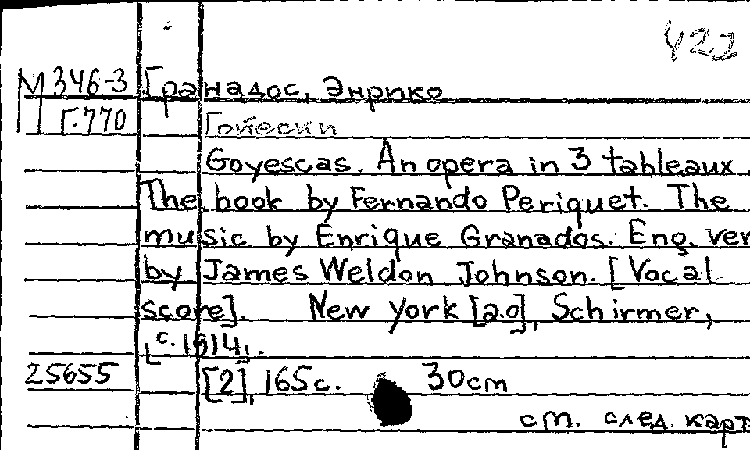 422
М346-3 Гранадос, Энрико
Г.770 Гойески
Goyescas. An opera in 3 tableaux.
The book by Fernando Periquet. The
music by Enrique Granados. Eng. ver
by James Weldon Johnson. [Vocal
score]. New York [a.o], Schirmer,
[c.1914].
25655 [2], 165c. 30cm
см. след. карт